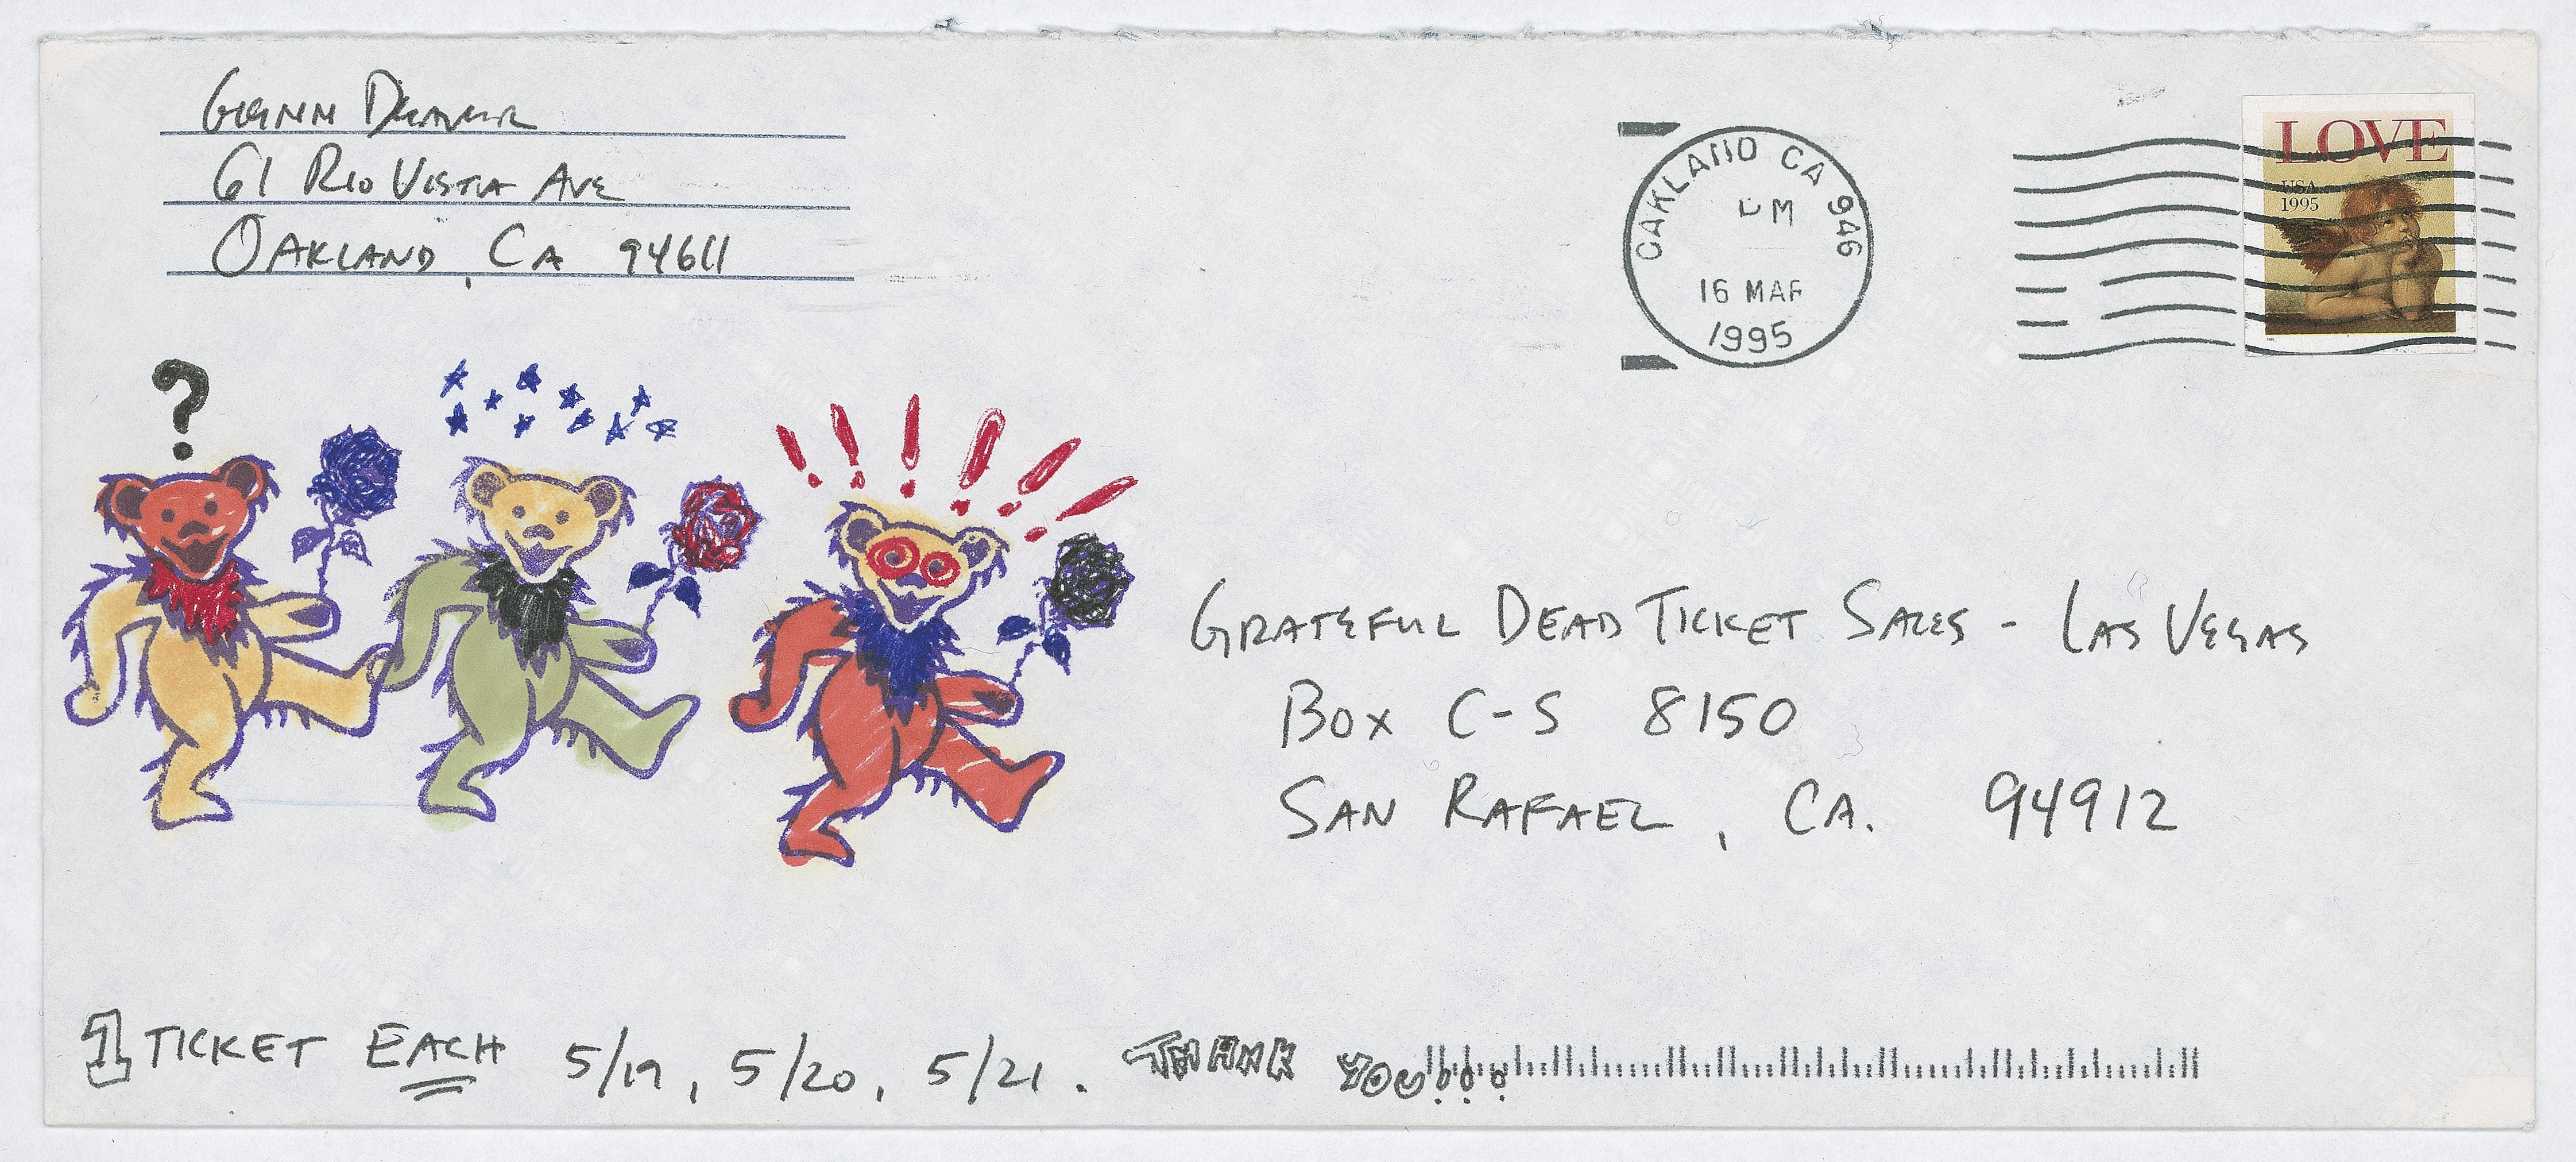 Glenn Deaver
61 Rio Vista Ave
Oakland, Ca 94611
OAKLAND CA 946
PM
16 MAR
1995
LOVE
USA
1995
?
! ! ! ! ! !
Grateful Dead Ticket Sales - Las Vegas
Box C-S 8150
San Rafael, CA. 94912
1 Ticket Each 5/19, 5/20, 5/21. Thank You!!!